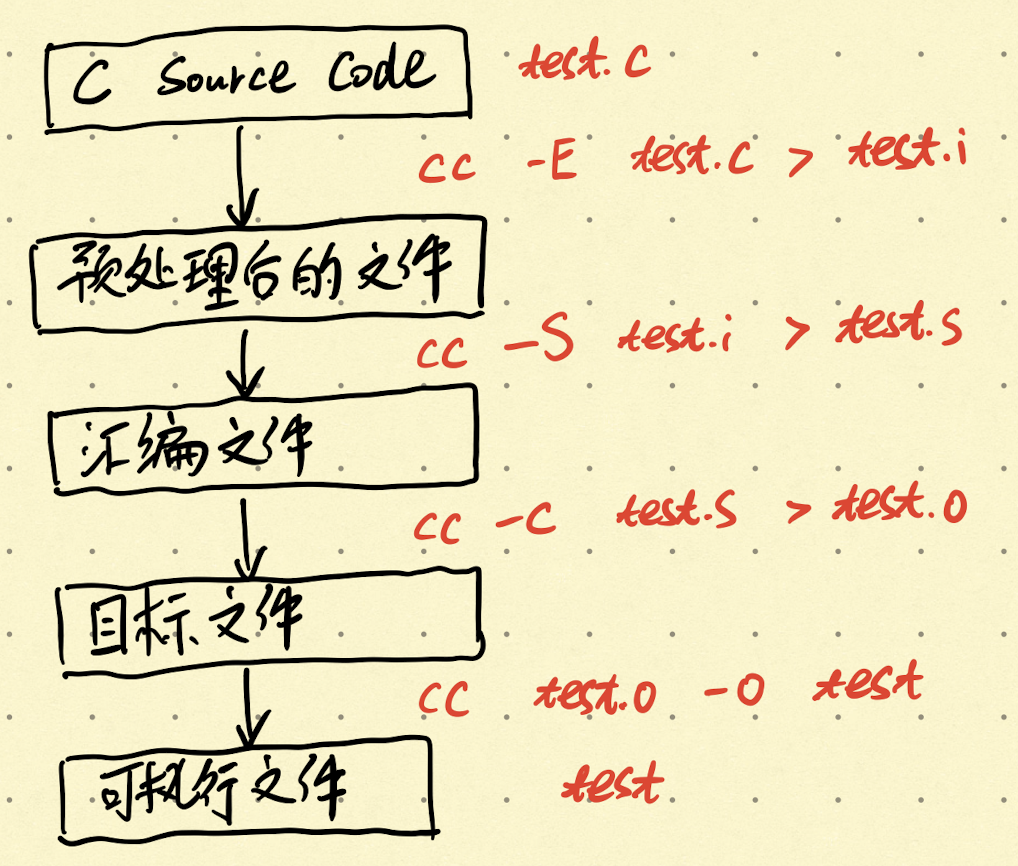 C Source Code
test.c
cc -E test.c > test.i
预处理后的文件
cc -S test.i > test.s
汇编文件
cc -c test.s > test.o
目标文件
cc test.o -o test
可执行文件
test